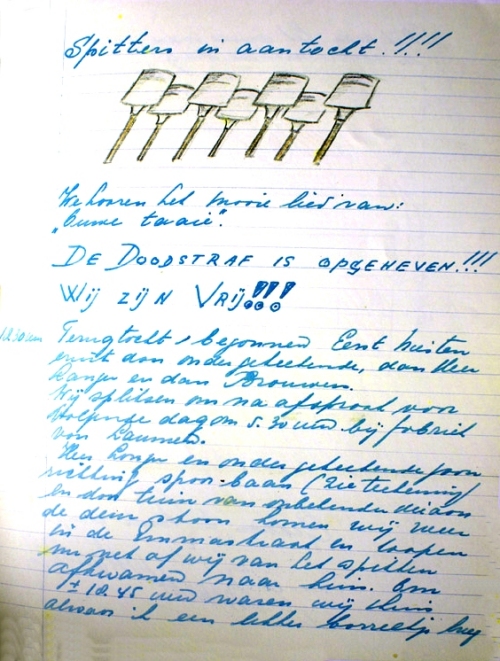 Spitters in aantocht!!!!
We hooren het mooie lied van:
„Ouwe taaie".
DE DOODSTRAF IS OPGEHEVEN!!!
WIJ ZIJN VRIJ!!!
12.30 uur Terugtocht begonnen Eerst huiten
eruit dan ondergeteekende, dan Heer
Lange en dan Brouwer.
Wij splitsen ons na afspraak voor
volgende dag om 5.30 uur bij fabriek
van Laumen.
Heer Lange en ondergeteekende gaan
richting spoorbaan (zie teekening)
en door tuin van onbekende
de dein komen wij weer
in de Emmastraat en loopen
nu net of wij van het spitten
afkwamen naar huis. Om
± 12.45 uur waren wij thuis
alwaar ik een lekker borreltje kreeg